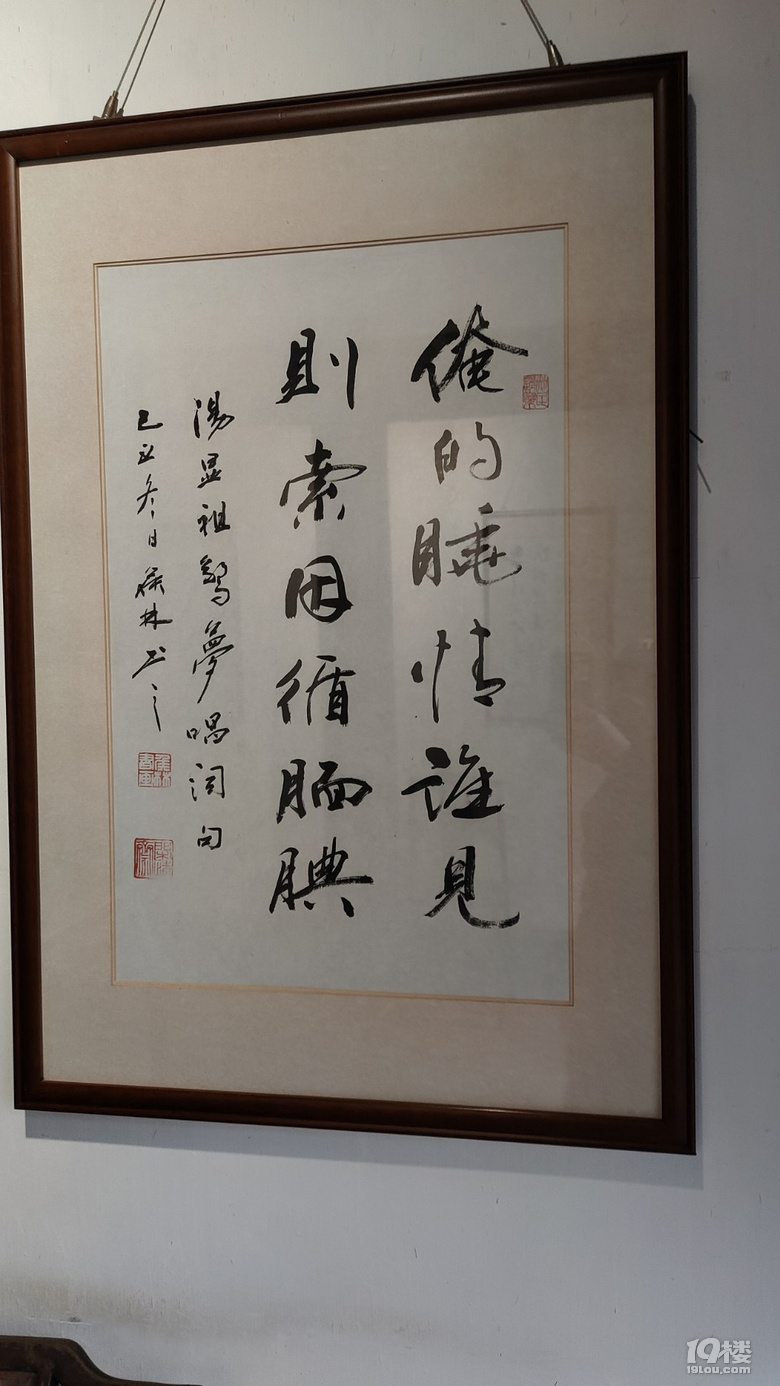 俺的睡情谁見
則索因循腼腆
湯显祖驚夢唱词句
己丑冬日 林书之
19楼
19lou.com